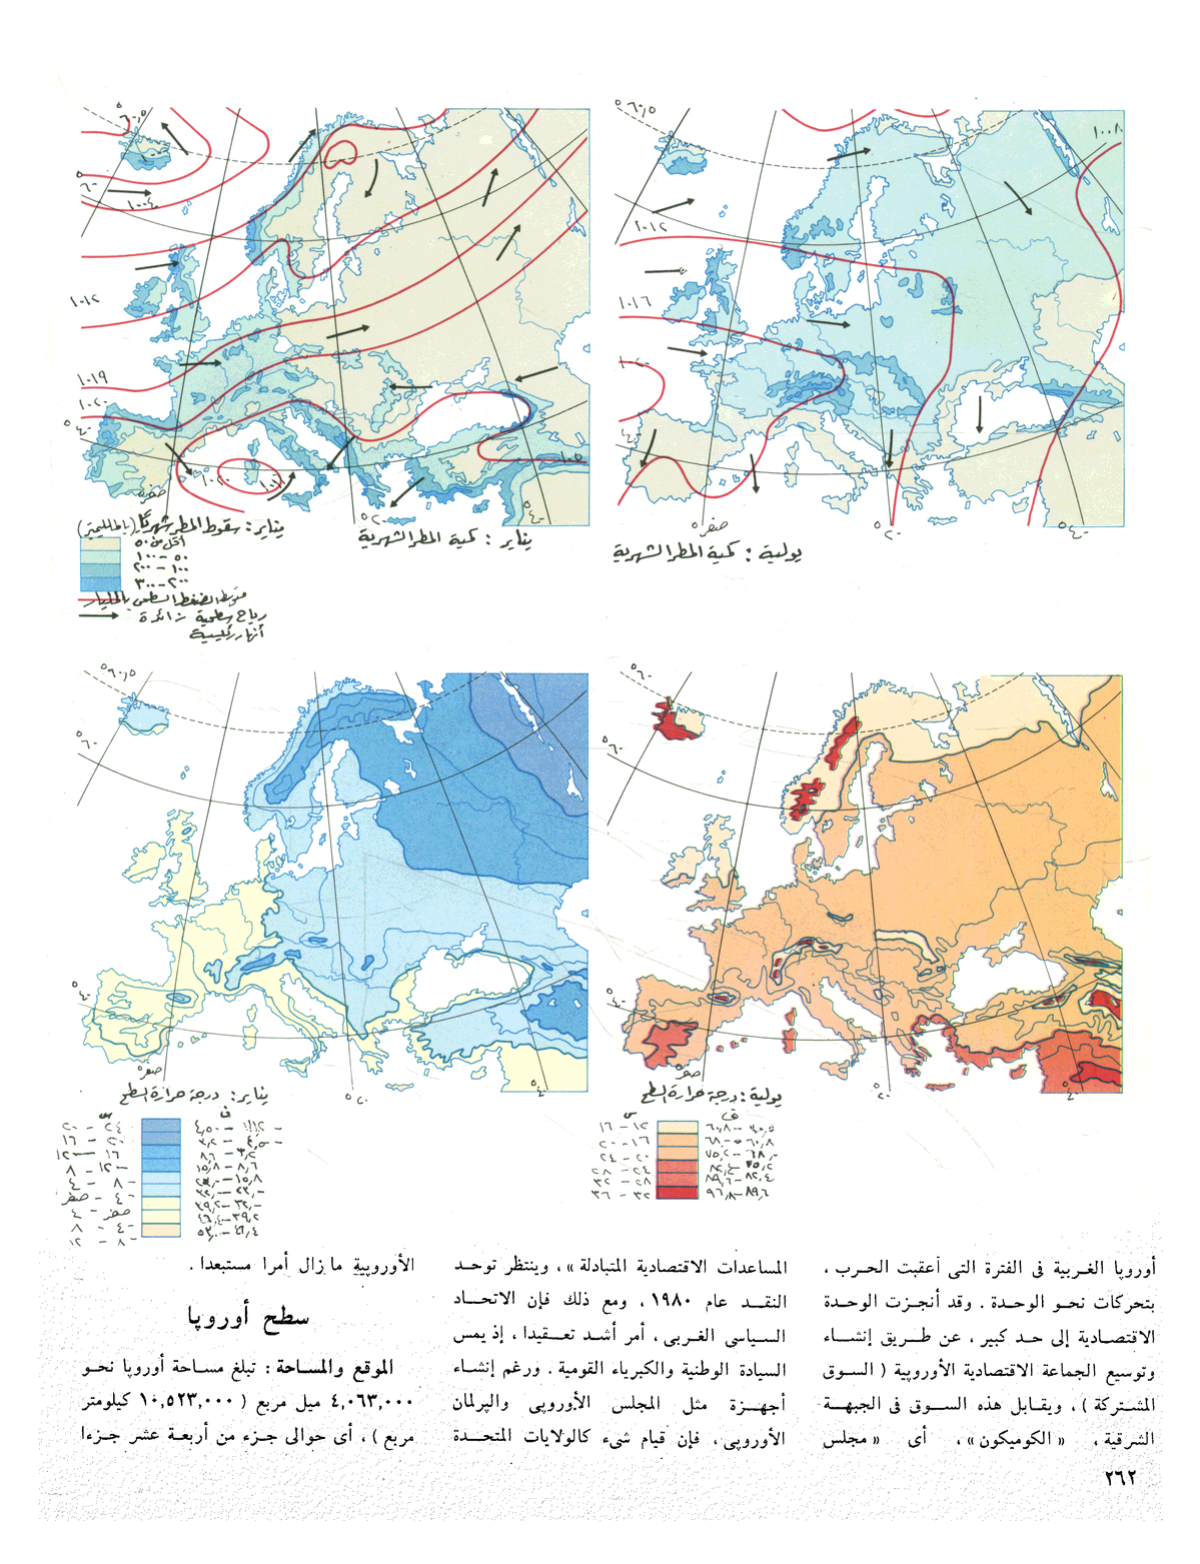 ٦٠,٥°
٦٠°
١٠٠٤
١٠١٢
١٠١٩
١٠٢٠
٤٠°
صفر°
٢٠°
٤٠°
يناير : كمية المطر الشهرية
يناير : سقوط المطر شهريًا (بالملليمتر)
أقل من ٥٠
٥٠ - ١٠٠
١٠٠ - ٢٠٠
٢٠٠ - ٣٠٠
متوسط الضغط السطحى بالمليبار
رياح سطحية زائدة
أنهار رئيسية
٦٠,٥°
١٠٠٨
١٠١٢
١٠١٦
١٠٢٠
٤٠°
صفر°
٢٠°
٤٠°
يولية : كمية المطر الشهرية
٦٠°
٤٠°
صفر°
٢٠°
٤٠°
يناير : درجة حرارة السطح
س
ف
٦٠°
٦٠°
٤٠°
صفر°
٢٠°
٤٠°
يولية : درجة حرارة السطح
س
ف
١٢ - ١٦
١٦ - ٢٠
٢٠ - ٢٤
٢٤ - ٢٨
٢٨ - ٣٢
٣٢ - ٣٦
أوروبا الغربية فى الفترة التى أعقبت الحرب ،
بتحركات نحو الوحدة . وقد أنجزت الوحدة
الاقتصادية إلى حد كبير ، عن طريق إنشاء
وتوسيع الجماعة الاقتصادية الأوروبية ( السوق
المشتركة ) ، ويقابل هذه السوق فى الجبهة
الشرقية ، « الكوميكون » ، أى « مجلس
المساعدات الاقتصادية المتبادلة » ، وينتظر توحد
النقد عام ١٩٨٠ ، ومع ذلك فإن الاتحاد
السياسى الغربى ، أمر أشد تعقيدا ، إذ يمس
السيادة الوطنية والكبرياء القومية . ورغم إنشاء
أجهزة مثل المجلس الأوروبى والبرلمان
الأوروبى ، فإن قيام شىء كالولايات المتحدة
الأوروبية ما زال أمرا مستبعدا .
سطح أوروبا
الموقع والمساحة : تبلغ مساحة أوروبا نحو
٤,٠٦٣,٠٠٠ ميل مربع ( ١٠,٥٢٣,٠٠٠ كيلومتر
مربع ) ، أى حوالى جزء من أربعة عشر جزءا
٢٦٢